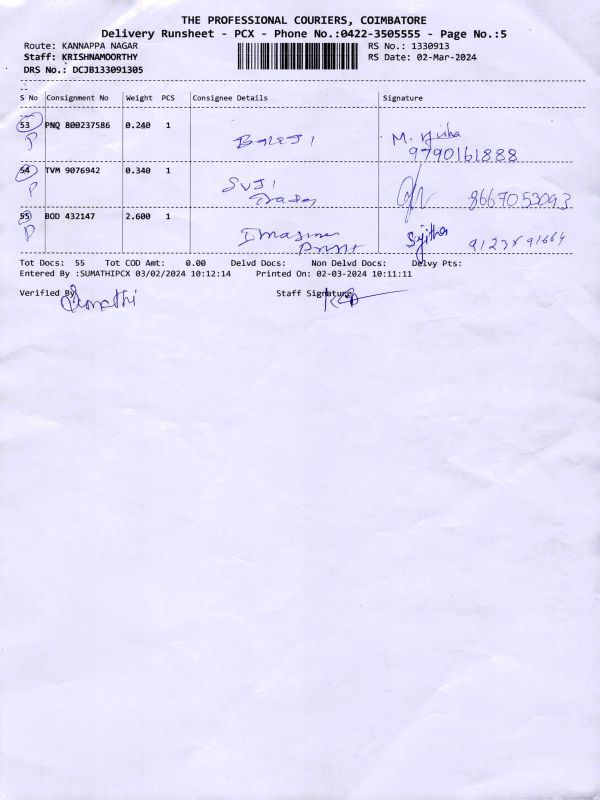 THE PROFESSIONAL COURIERS, COIMBATORE
Delivery Runsheet - PCX - Phone No.:0422-3505555 - Page No.:5
Route: KANNAPPA NAGAR RS No.: 1330913
Staff: KRISHNAMOORTHY RS Date: 02-Mar-2024
DRS No.: DCJB133091305
S No Consignment No Weight PCS Consignee Details Signature
53 PNQ 800237586 0.240 1 Balaji M. Nisha
P 9790161888
54 TVM 9076942 0.340 1 Suji 8667053093
P
55 BOD 432147 2.600 1 Sujitha
P Print
Tot Docs: 55 Tot COD Amt: 0.00 Delvd Docs: Non Delvd Docs: Delvy Pts:
Entered By :SUMATHIPCX 03/02/2024 10:12:14 Printed On: 02-03-2024 10:11:11
Verified By Sumathi Staff Signature